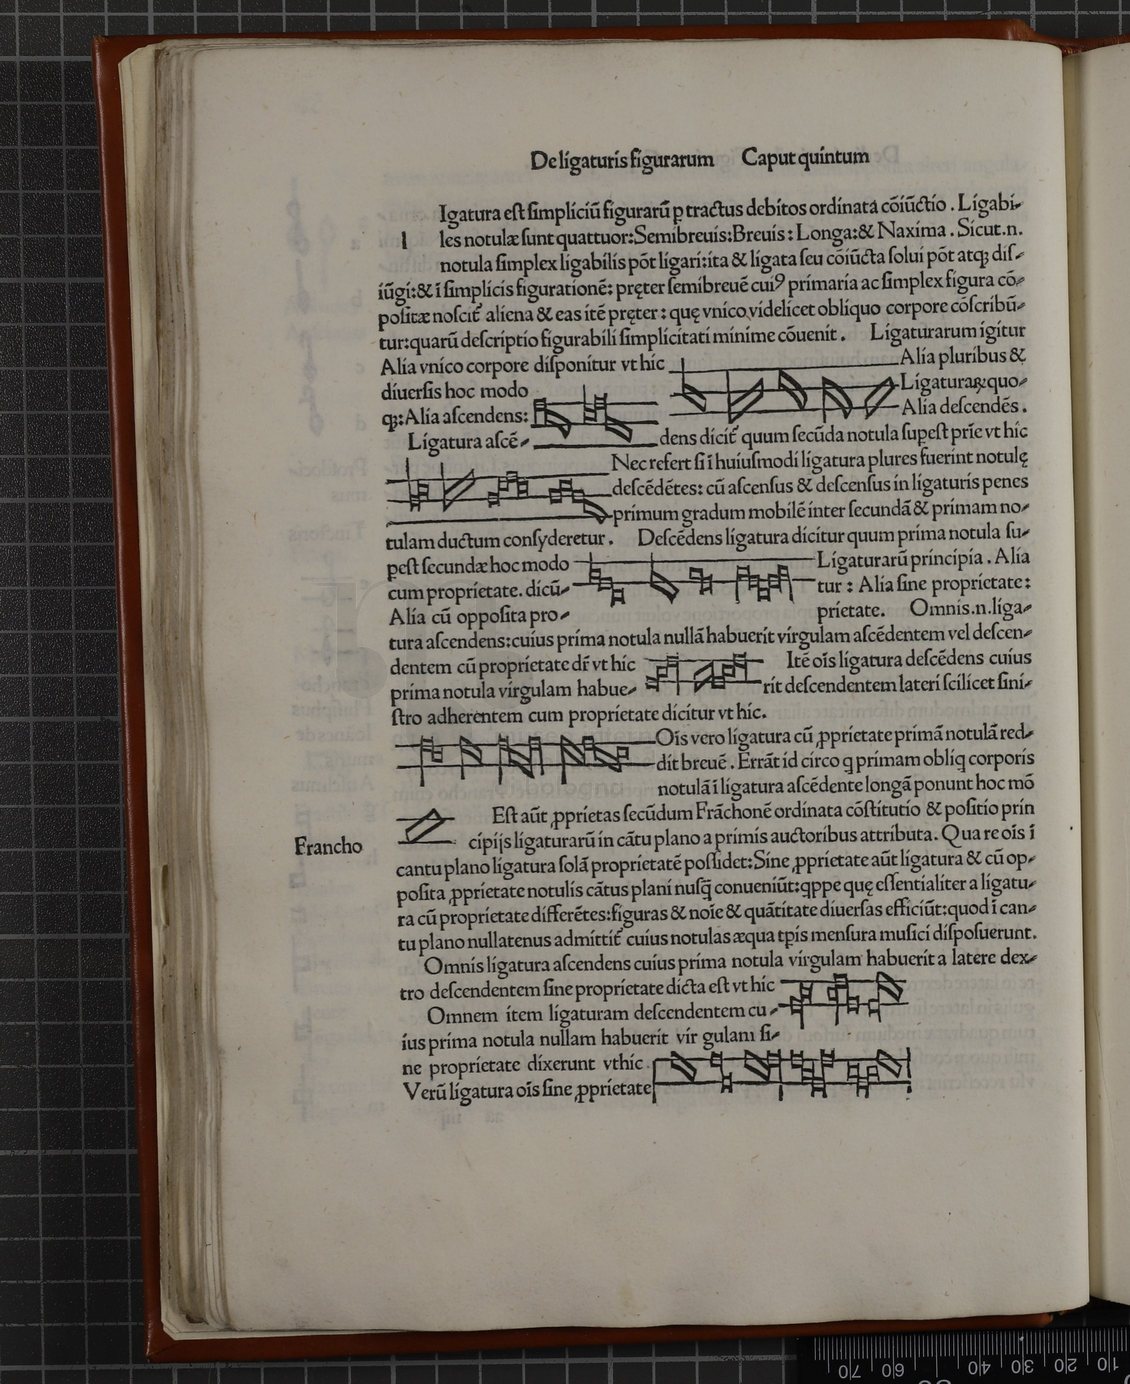 De ligaturis figurarum Caput quintum
Igatura est simpliciũ figurarũ ꝑ tractus debitos ordinata cõiũctio. Ligabi-
l les notulæ sunt quattuor: Semibreuis: Breuis: Longa: & Naxima. Sicut.n.
notula simplex ligabilis põt ligari: ita & ligata seu cõiũcta solui põt atqꝫ dis-
iũgi: & ĩ simplicis figurationẽ: pręter semibreuẽ cuiꝰ primaria ac simplex figura cõ-
positæ noscit᷑ aliena & eas itẽ pręter: quę vnico videlicet obliquo corpore cõscribũ-
tur: quarũ descriptio figurabili simplicitati minime cõuenit. Ligaturarum igitur
Alia vnico corpore disponitur vt hic Alia pluribus &
diuersis hoc modo Ligaturaꝝ quo-
qꝫ: Alia ascendens: Alia descendẽs.
Ligatura ascẽ- dens dicit᷑ quum secũda notula supest prĩe vt hic
Nec refert si ĩ huiusmodi ligatura plures fuerint notulę
descẽdẽtes: cũ ascensus & descensus in ligaturis penes
primum gradum mobilẽ inter secundã & primam no-
tulam ductum consyderetur. Descẽdens ligatura dicitur quum prima notula su-
pest secundæ hoc modo Ligaturarũ principia. Alia
cum proprietate. dicũ- tur: Alia sine proprietate:
Alia cũ opposita pro- prietate. Omnis.n.liga-
tura ascendens: cuius prima notula nullã habuerit virgulam ascẽdentem vel descen-
dentem cũ proprietate dr̃ vt hic Itẽ oĩs ligatura descẽdens cuius
prima notula virgulam habue- rit descendentem lateri scilicet sini-
stro adherentem cum proprietate dicitur vt hic.
Oĩs vero ligatura cũ ꝓprietate primã notulã red-
dit breuẽ. Errãt id circo q primam obliq corporis
notulã ĩ ligatura ascẽdente longã ponunt hoc mõ
Est aũt ꝓprietas secũdum Frãchonẽ ordinata cõstitutio & positio prin
Francho cipijs ligaturarũ in cãtu plano a primis auctoribus attributa. Qua re oĩs ĩ
cantu plano ligatura solã proprietatẽ possidet: Sine ꝓprietate aũt ligatura & cũ op-
posita ꝓprietate notulis cãtus plani nusq̃ conueniũt: qppe quę essentialiter a ligatu-
ra cũ proprietate differẽtes: figuras & noĩe & quãtitate diuersas efficiũt: quod ĩ can-
tu plano nullatenus admittit᷑ cuius notulas æqua tp̃is mensura musici disposuerunt.
Omnis ligatura ascendens cuius prima notula virgulam habuerit a latere dex-
tro descendentem sine proprietate dicta est vt hic
Omnem item ligaturam descendentem cu-
ius prima notula nullam habuerit vir gulam si-
ne proprietate dixerunt vt hic.
Verũ ligatura oĩs sine ꝓprietate
70 60 40 30 20 10